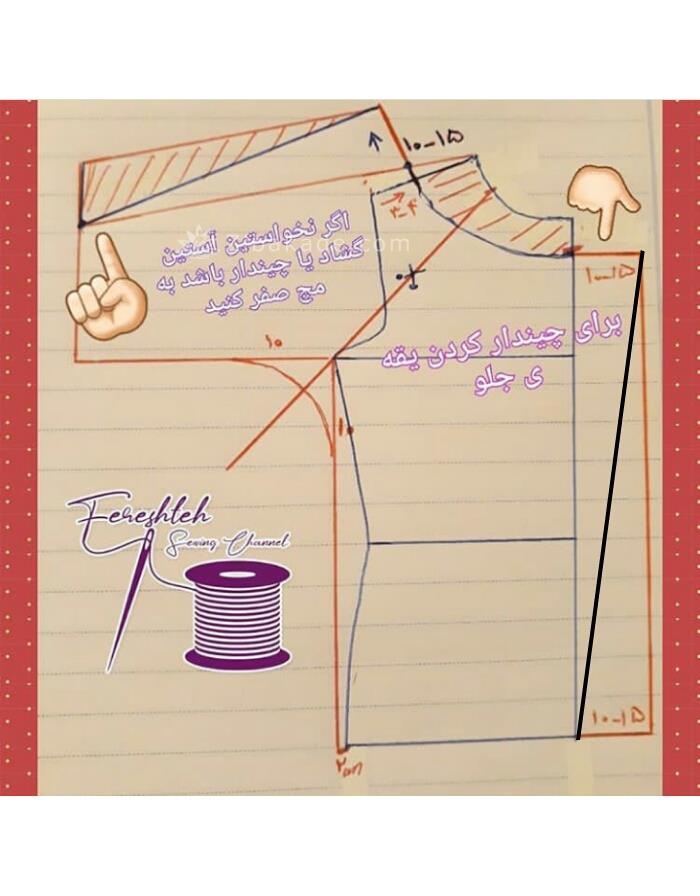 ۱۰-۱۵
۳-۴
bakade.com
اگر نخواستین آستین
گشاد یا چیندار باشد به
مچ صفر کنید
۱۰-۱۵
برای چیندار کردن یقه
ی جلو
۱۰
۱۰
Fereshteh
Sewing Channel
۱۰-۱۵
۲cm